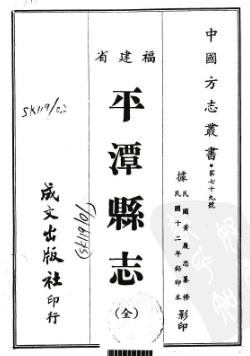 中國方志叢書・第七十九號
據民國黃履思纂修
民國十二年鉛印本影印
福建省
平潭縣志
(全)
成文出版社印行
SK119/02